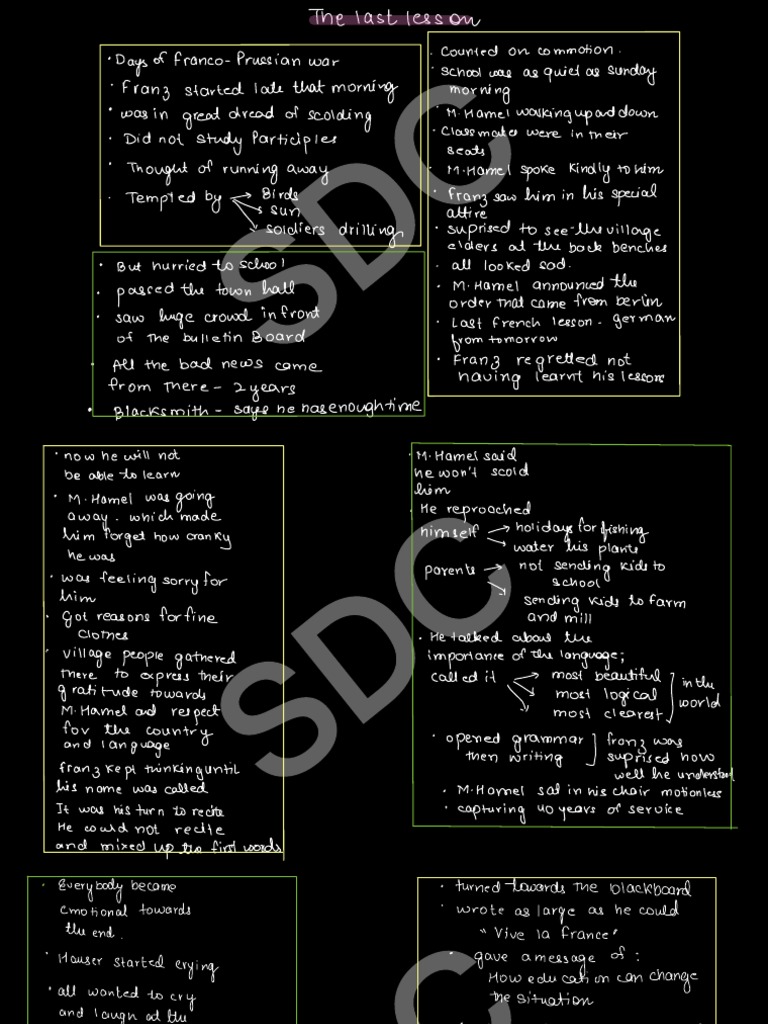 The last lesson
· Days of Franco-Prussian war
· Franz started late that morning
· was in great dread of scolding
· Did not study Participles
· Thought of running away
· Tempted by → Birds
→ sun
→ soldiers drilling
· But hurried to school
· passed the town hall
· saw huge crowd in front
of the bulletin Board
· All the bad news came
from there - 2 years
· Blacksmith - says he has enough time
· Counted on commotion.
· School was as quiet as sunday
morning
· M. Hamel walking up and down
· Classmates were in their
seats
· M. Hamel spoke kindly to him
· Franz saw him in his special
attire
· suprised to see the village
elders at the back benches
· all looked sad.
· M. Hamel announced the
order that came from berlin
· Last french lesson - german
from tomorrow
· Franz regretted not
having learnt his lessons
· now he will not
be able to learn
· M. Hamel was going
away. which made
him forget how cranky
he was
· was feeling sorry for
him
· Got reasons for fine
clothes
· village people gathered
there to express their
gratitude towards
M. Hamel and respect
for the country
and language
franz kept thinking until
his name was called
It was his turn to recite
He could not recite
and mixed up the first words
· M. Hamel said
he won't scold
him
· He reproached
himself → holidays for fishing
→ water his plants
parents → not sending kids to
school
→ sending kids to farm
and mill
· He talked about the
importance of the language;
called it → most beautiful
→ most logical
→ most clearest
in the
world
· opened grammar
then writing
franz was
suprised how
well he understand
· M. Hamel sat in his chair motionless
· capturing 40 years of service
· Everybody became
emotional towards
the end.
· Hauser started crying
· all wanted to cry
and laugh at the
· turned towards the blackboard
· wrote as large as he could
"Vive la France"
· gave a message of :
How education can change
the situation
SDC
SDC
SDC